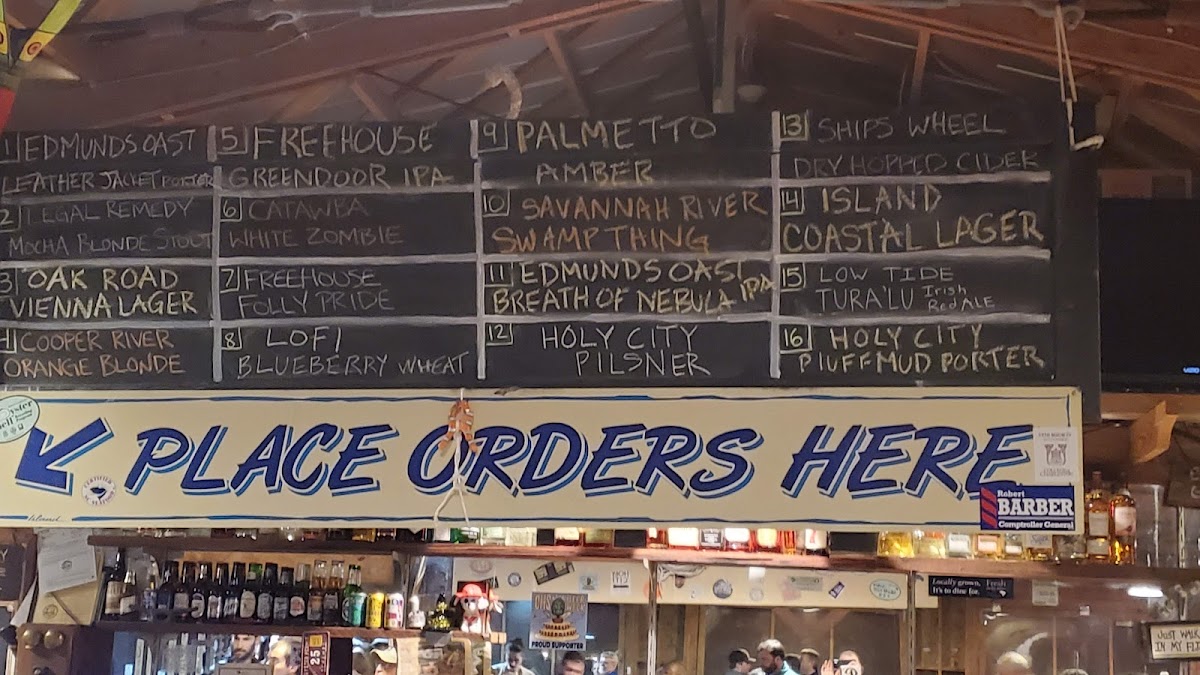 1 EDMUNDS OAST
LEATHER JACKET PORTER
2 LEGAL REMEDY
MOCHA BLONDE STOUT
3 OAK ROAD
VIENNA LAGER
4 COOPER RIVER
ORANGE BLONDE
5 FREEHOUSE
GREENDOOR IPA
6 CATAWBA
WHITE ZOMBIE
7 FREEHOUSE
FOLLY PRIDE
8 LOFI
BLUEBERRY WHEAT
9 PALMETTO
AMBER
10 SAVANNAH RIVER
SWAMP THING
11 EDMUNDS OAST
BREATH OF NEBULA IPA
12 HOLY CITY
PILSNER
13 SHIPS WHEEL
DRY HOPPED CIDER
14 ISLAND
COASTAL LAGER
15 LOW TIDE
TURA'LU Irish
Red ALE
16 HOLY CITY
PLUFF MUD PORTER
PLACE ORDERS HERE
Robert
BARBER
Comptroller General
Locally grown.
It's to dine for.
Fresh
PROUD SUPPORTER
25
JUST WALK
IN MY FL